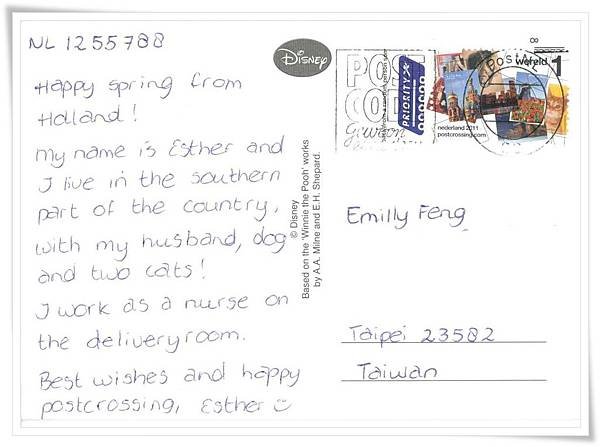 NL 1255788
Happy spring from
Holland!
My name is Esther and
I live in the southern
part of the country,
with my husband, dog
and two cats!
I work as a nurse on
the deliveryroom.
Best wishes and happy
postcrossing, Esther
Disney
© Disney
Based on the 'Winnie the Pooh' works
by A.A. Milne and E.H. Shepard.
POST
PRIORITY
nederland 2011
postcrossing.com
wereld
1
8
Emilly Feng
Taipei 23582
Taiwan